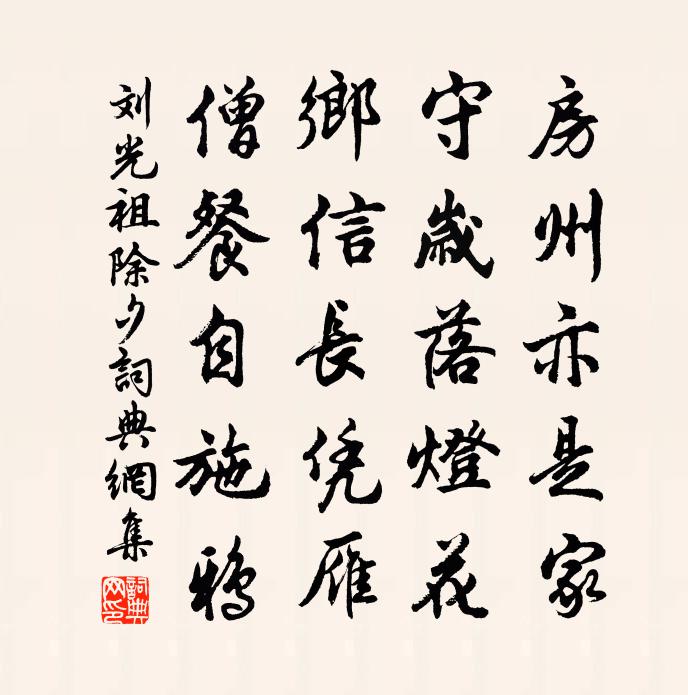 房州亦是家
守歲落燈花
鄉信長凭雁
僧餐自施鴉
刘光祖除夕詞典網集
詞典網印